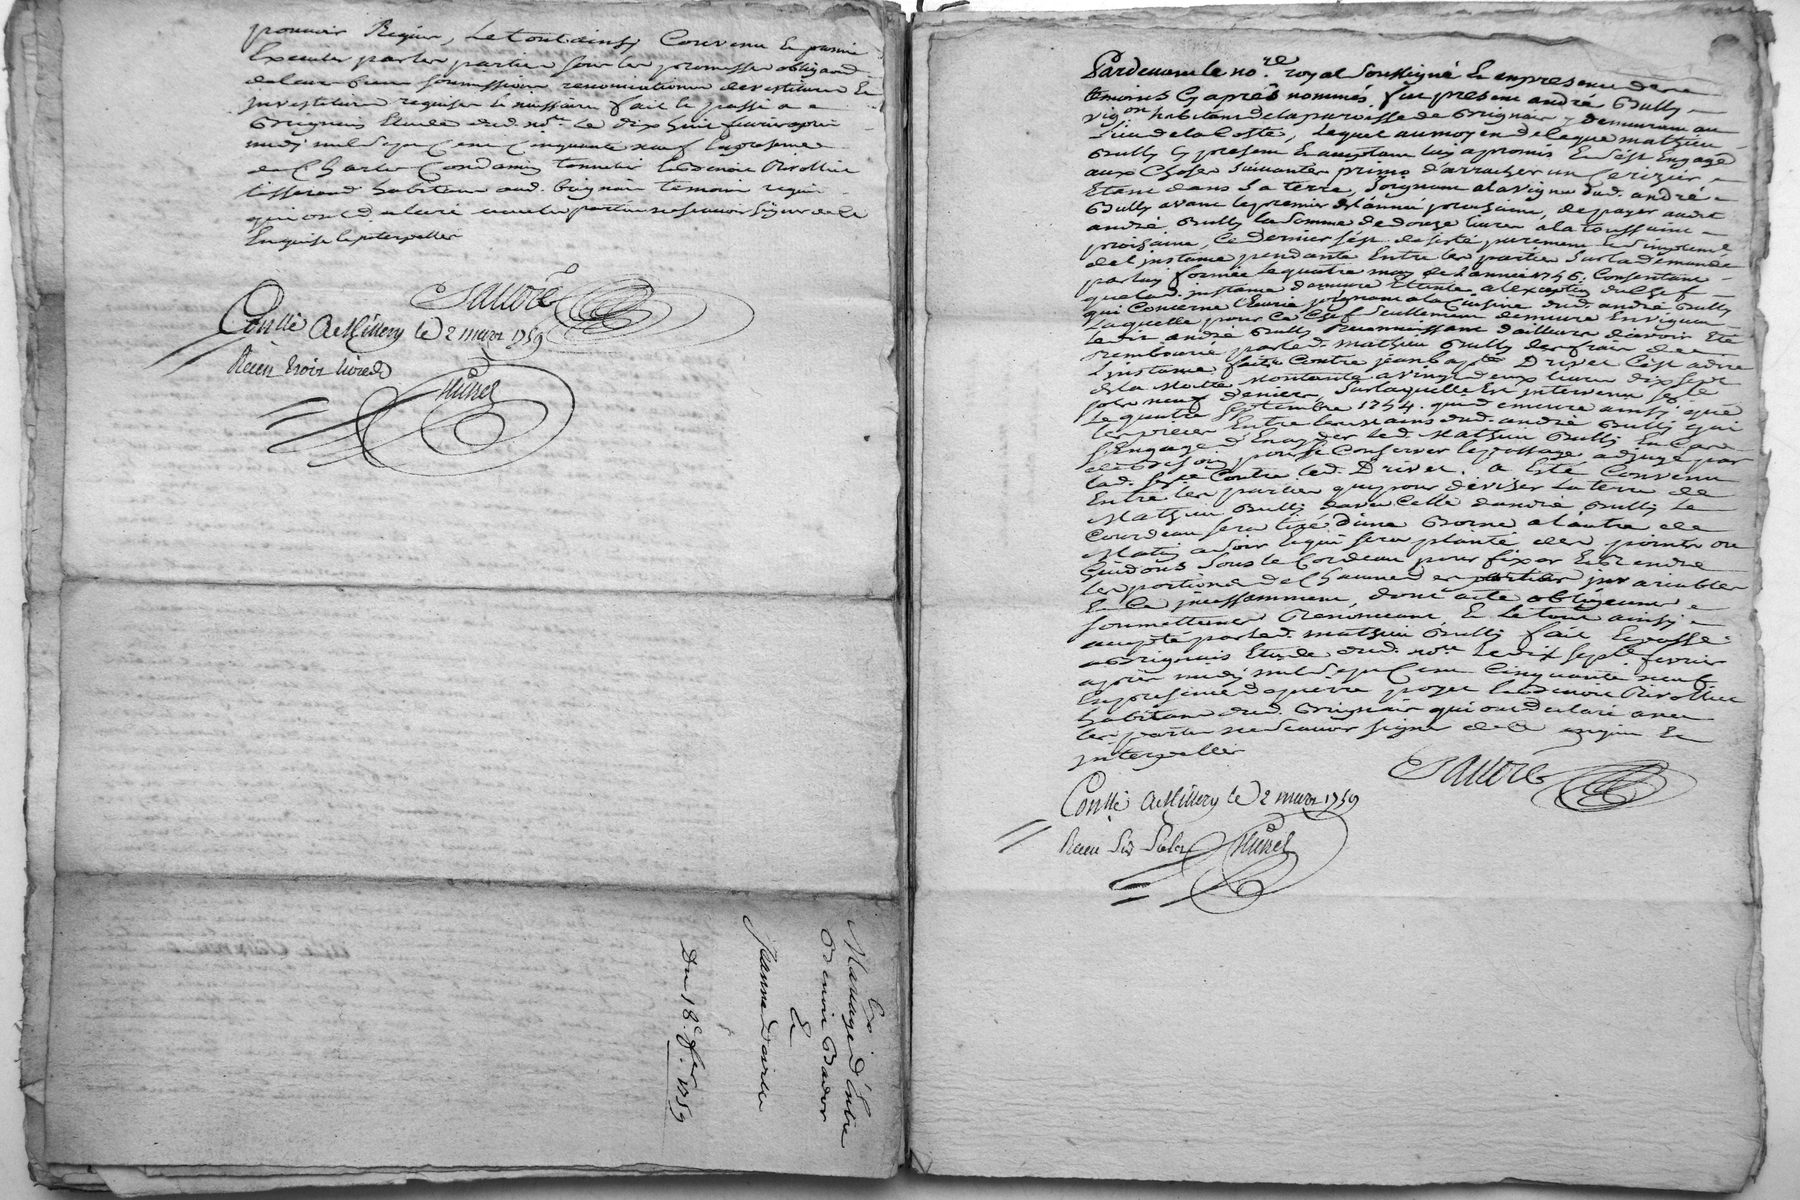 pouvoir Requir, Le tout ainsy Convenu & promis
Executer par les parties sous les promesses obligaõns
de leurs biens soumissions renonciations devestitures &
investitures requises & necessaires fait & passé a
Brignais Etude dud. no.re le dix huit fevrier apres
midy mil sept Cent Cinquante neuf En presence
de Charles Condamin tonnelier & Benoit Rivollier
tisserand habitans aud. Brignais temoins requis
qui ont declaré avec les parties ne scavoir signer de ce
Enquis & interpellés
Conllé A Millery le 2 mars 1759
Receu trois livres
Mariage d'Entre
Benoit Bador
&
Jeanne
Du 18.e f.er 1759
Pardevant le no.re royal Soussigné & en presence des
temoins Cy après nommés fut present andré Bully
vigon habitant de la paroisse de Brignais y demeurant au
Lieu de la Coste, Lequel au moyen de ce que mathieu
Bully Cy present & acceptant luy a promis & s'est Engagé
aux Choses suivantes primo d'arracher un Cerisier
Etant dans sa terre, joignant a la vigne dud. andré
Bully avant le premier de l'année prochaine, de payer audit
andré Bully la somme de douze livres a la toussaint
prochaine, Ce dernier s'est desisté purement & simplemt
de l'instance pendante Entre les parties sur la demande
par luy formée le quatre may de l'année 1756. Consentant
que lad. instance demeure Eteinte a l'exception du Chef
qui Concerne l'Ecurie joignant a la Cuisine dud. andré Bully
Laquelle pour ce Chef seullement demeure En vigueur
Ledit andré Bully Reconnoissant d'ailleurs d'avoir Eté
remboursé par led. mathieu Bully des frais de
l'instance faite Contre jean bap.te Drivet C'est adire
de la Moitié montante a vingt deux livres dix sept
sols neuf deniers, sur laquelle Est intervenu s.ce
Le quatre Septembre 1754. qui demeure ainsy que
les pieces Entre les mains dud. andré Bully qui
s'Engage d'En ayder led. Mathieu Bully En Cas
de besoin pour se Conserver le passage adjugé par
lad. s.ce Contre led. Drivet. a Esté Convenu
Entre les parties que pour diviser la terre de
Mathieu Bully d'avec Celle d'andré Bully Le
Courdeau sera tiré d'une Borne a l'autre de
Matin a Soir & qui sera planté des pointes ou
Guidons sous le Cordeau pour fixer & rendre
les portions de Chacune des parties invariables
& Ce incessamment, dont acte obligeant
soumettant Renonceant, & Le tout ainsy
accepté par led. mathieu Bully fait & passé
a Brignais Etude dud. no.re Le dix sept fevrier
après midy mil sept Cent Cinquante neuf
En presence de pierre poyet & Benoit Rivollier
habitans dud. Brignais qui ont declaré avec
les parties ne scavoir signer de ce enquis &
interpellés
Conllé A Millery le 2 mars 1759
Receu Six Sols